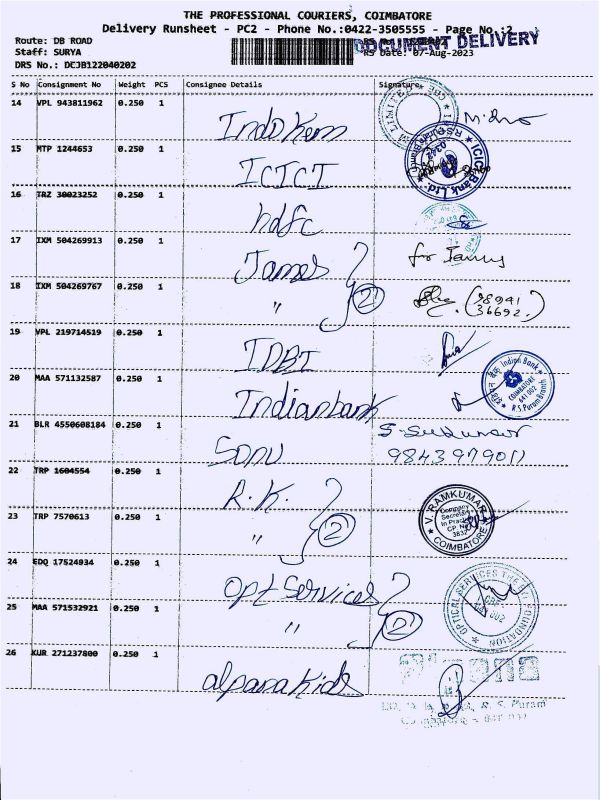 THE PROFESSIONAL COURIERS, COIMBATORE
Delivery Runsheet - PC2 - Phone No.:0422-3505555 - Page No.:2
Route: DB ROAD
DOCUMENT DELIVERY
Staff: SURYA
RS Date: 07-Aug-2023
DRS No.: DCJB122040202
S No Consignment No Weight PCS Consignee Details Signature
14 VPL 943811962 0.250 1
Indo Kem
15 MTP 1244653 0.250 1
ICICI
ICICI Bank Ltd.
16 TRZ 30023252 0.250 1
hdfc
17 IXM 504269913 0.250 1
James
for James
18 IXM 504269767 0.250 1
" 2
(98941
36692.)
19 VPL 219714519 0.250 1
IDBI
20 MAA 571132587 0.250 1
Indianbank
Indian Bank
COIMBATORE
641 002
R.S. Puram Branch
21 BLR 4550608184 0.250 1
Sonu
9843979011
22 TRP 1604554 0.250 1
R.K.
V. RAMKUMAR
Company
Secretary
In Practice
CP. No.
3832
COIMBATORE
23 TRP 7570613 0.250 1
" 2
24 EDQ 17524934 0.250 1
Opt Services
25 MAA 571532921 0.250 1
" 2
26 KUR 271237800 0.250 1
alpana Kids
R. S. Puram